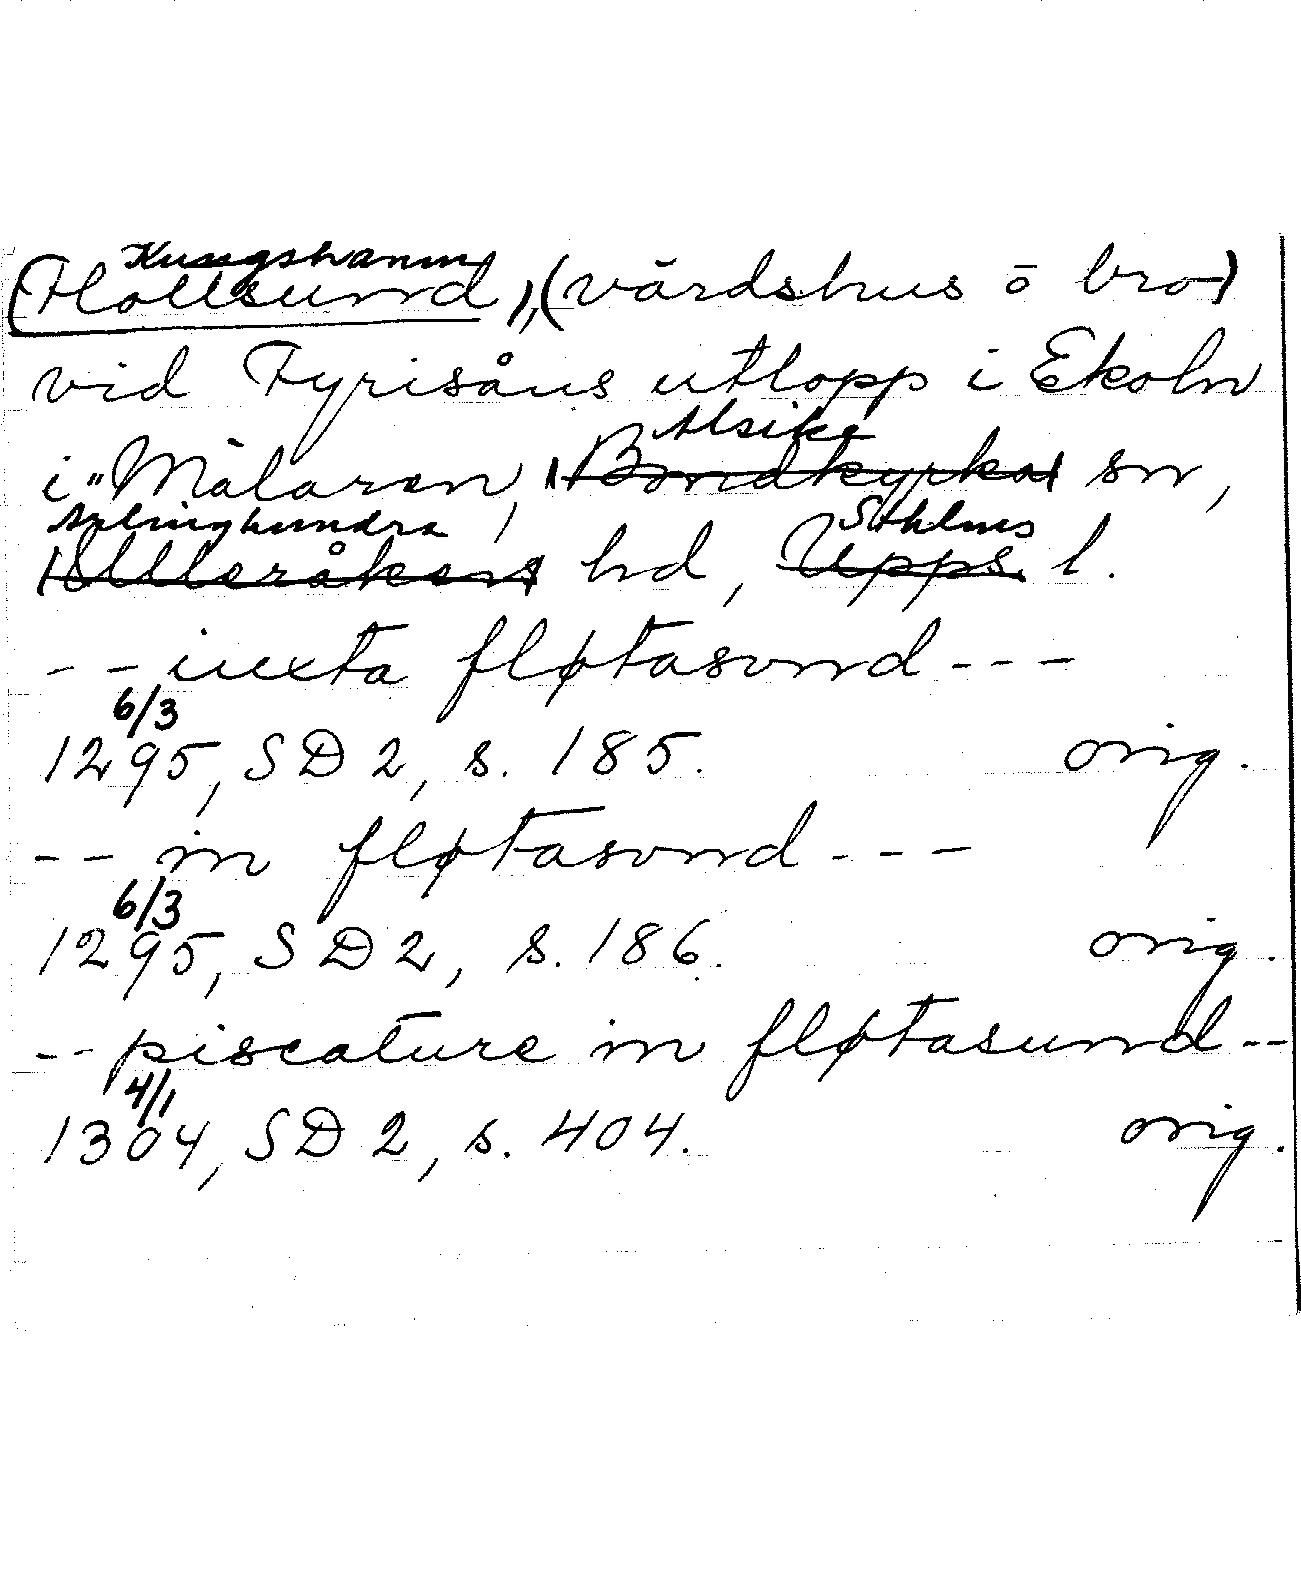 Kungshamn
(Flottsund), (värdshus o bro)
vid Fyrisåns utlopp i Ekoln
Alsike
i Mälaren, (Bondkyrka) sn,
Ärlinghundra Sthlms
(Ulleråkers) hd, Upps. l.
-- iuxta fløtasvnd ---
6/3
1295, SD 2, s. 185. orig.
-- in fløtasvnd ---
6/3
1295, SD 2, s. 186. orig.
-- piscature in fløtasund --
4/1
1304, SD 2, s. 404. orig.